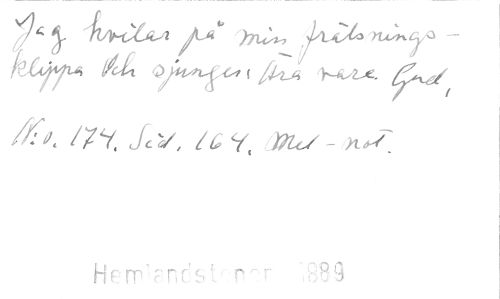 Jag hvilar på min frälsnings-
klippa Och sjunger: Ära vare Gud,
N:o. 174. Sid. 164. Mel-not.
Hemlandstoner 1889